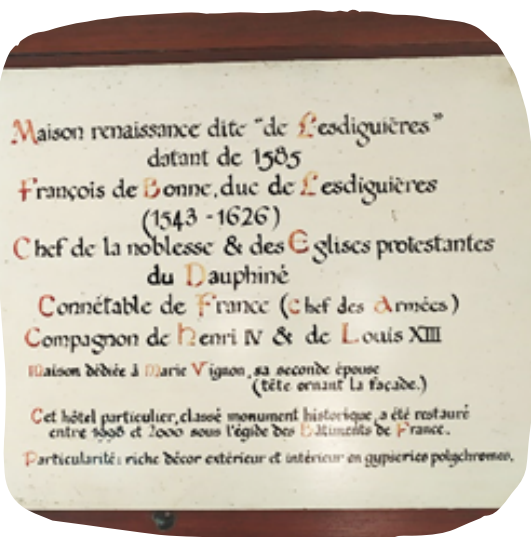 Maison renaissance dite "de Lesdiguières"
datant de 1585
François de Bonne, duc de Lesdiguières
(1543 - 1626)
Chef de la noblesse & des Eglises protestantes
du Dauphiné
Connétable de France (Chef des Armées)
Compagnon de Henri IV & de Louis XIII
Maison dédiée à Marie Vignon, sa seconde épouse
(tête ornant la façade.)
Cet hôtel particulier, classé monument historique, a été restauré
entre 1998 et 2000 sous l'égide des Bâtiments de France.
Particularité: riche décor extérieur et intérieur en gypseries polychromes.